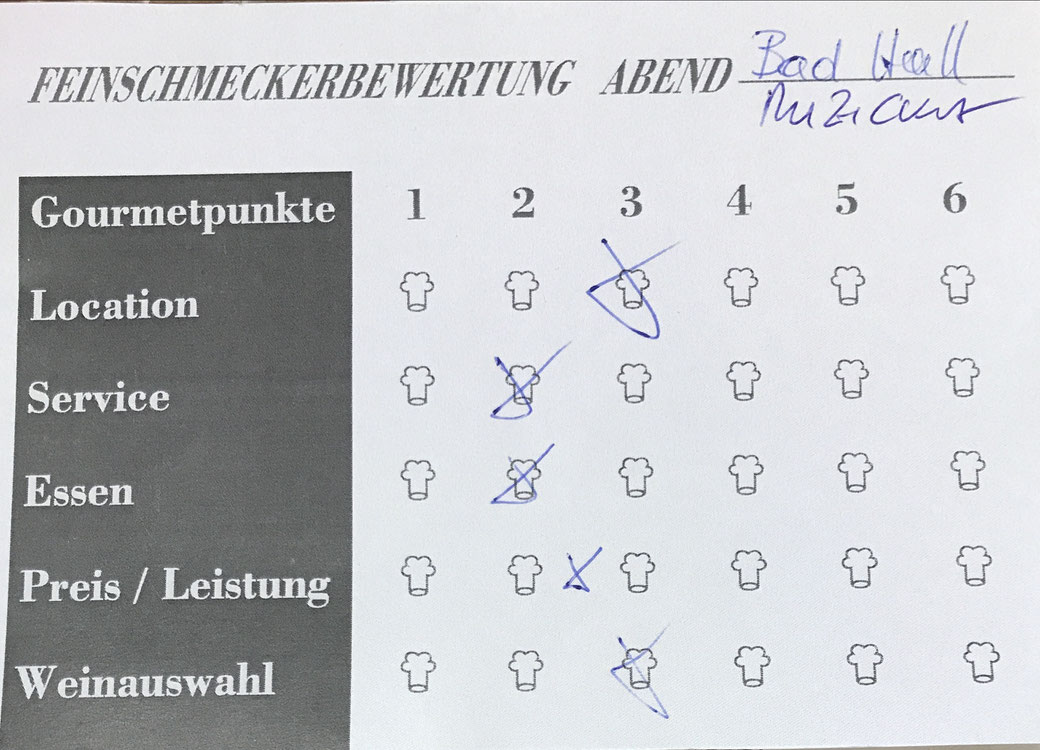 FEINSCHMECKERBEWERTUNG ABEND Bad Hall
Gourmetpunkte 1 2 3 4 5 6
Location
Service
Essen
Preis / Leistung
Weinauswahl